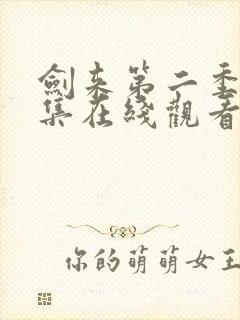 劍来第二季
集在綫觀看
你的萌萌女王